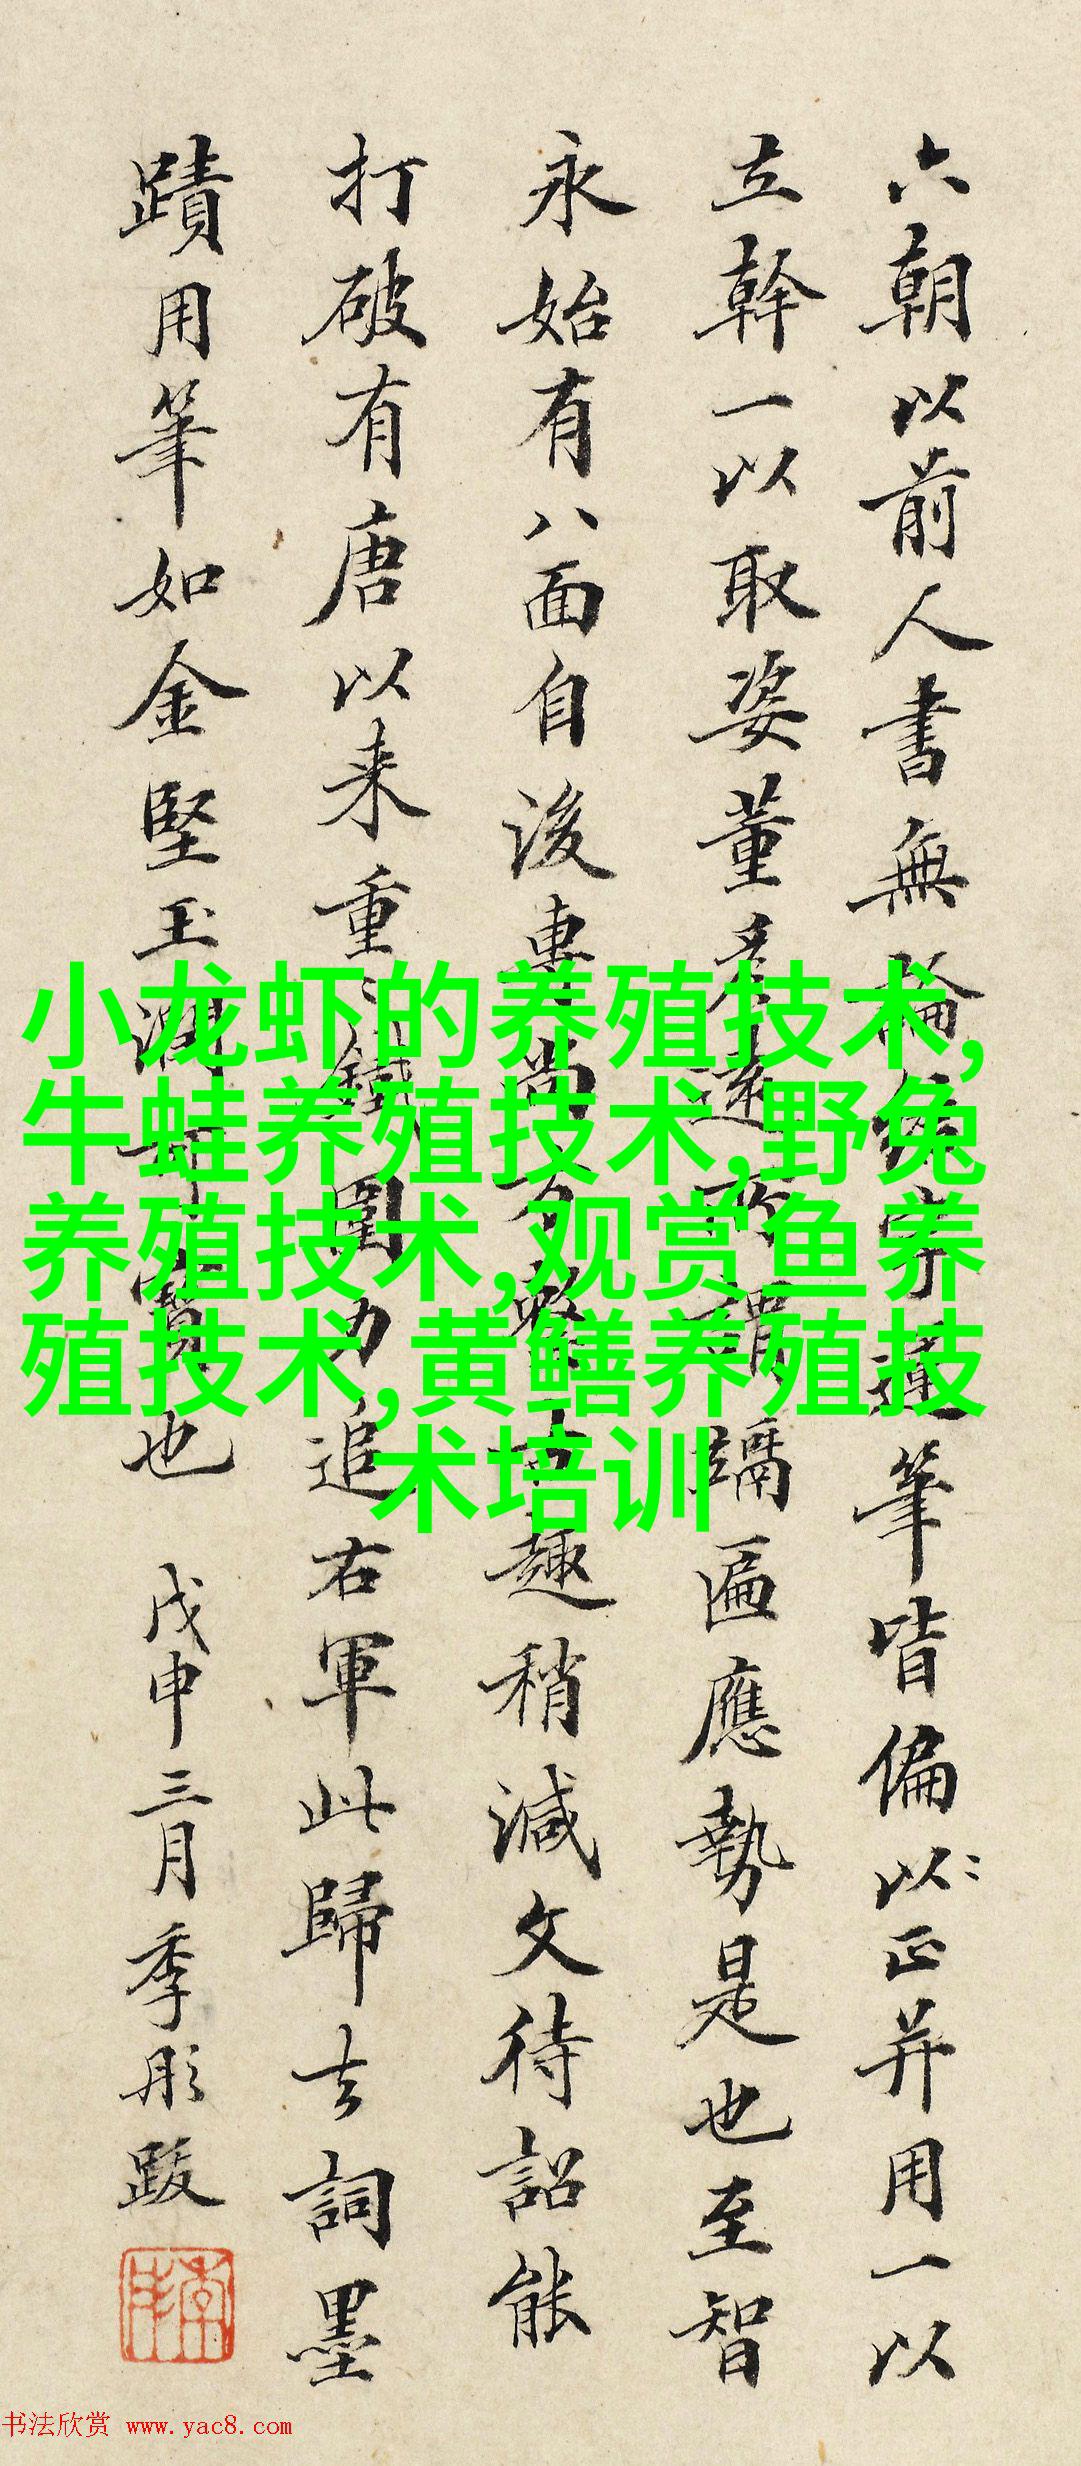 六朝以前人書無論宗運筆皆偏以正并用一以
立幹一以取姿董彥遠所謂隔匾應勢是也至智
永始有八面自後專尚方整古趣稍減文待詔能
打破有唐以来重重鐵圍力追右軍此歸去詞墨
蹟用筆如金堅玉潤可寶也 戊申三月季彤跋
小龙虾的养殖技术,
牛蛙养殖技术,野兔
养殖技术,观赏鱼养
殖技术,黄鳝养殖技
术培训
书法欣赏 www.yac8.com